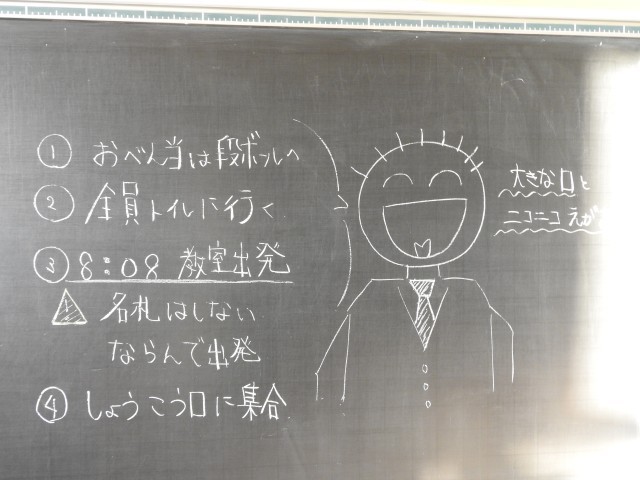 ① おべん当は段ボールへ
② 全員トイレに行く
③ 8:08 教室出発
名札はしない
ならんで出発
④ しょうこう口に集合
大きな口と
ニコニコえが